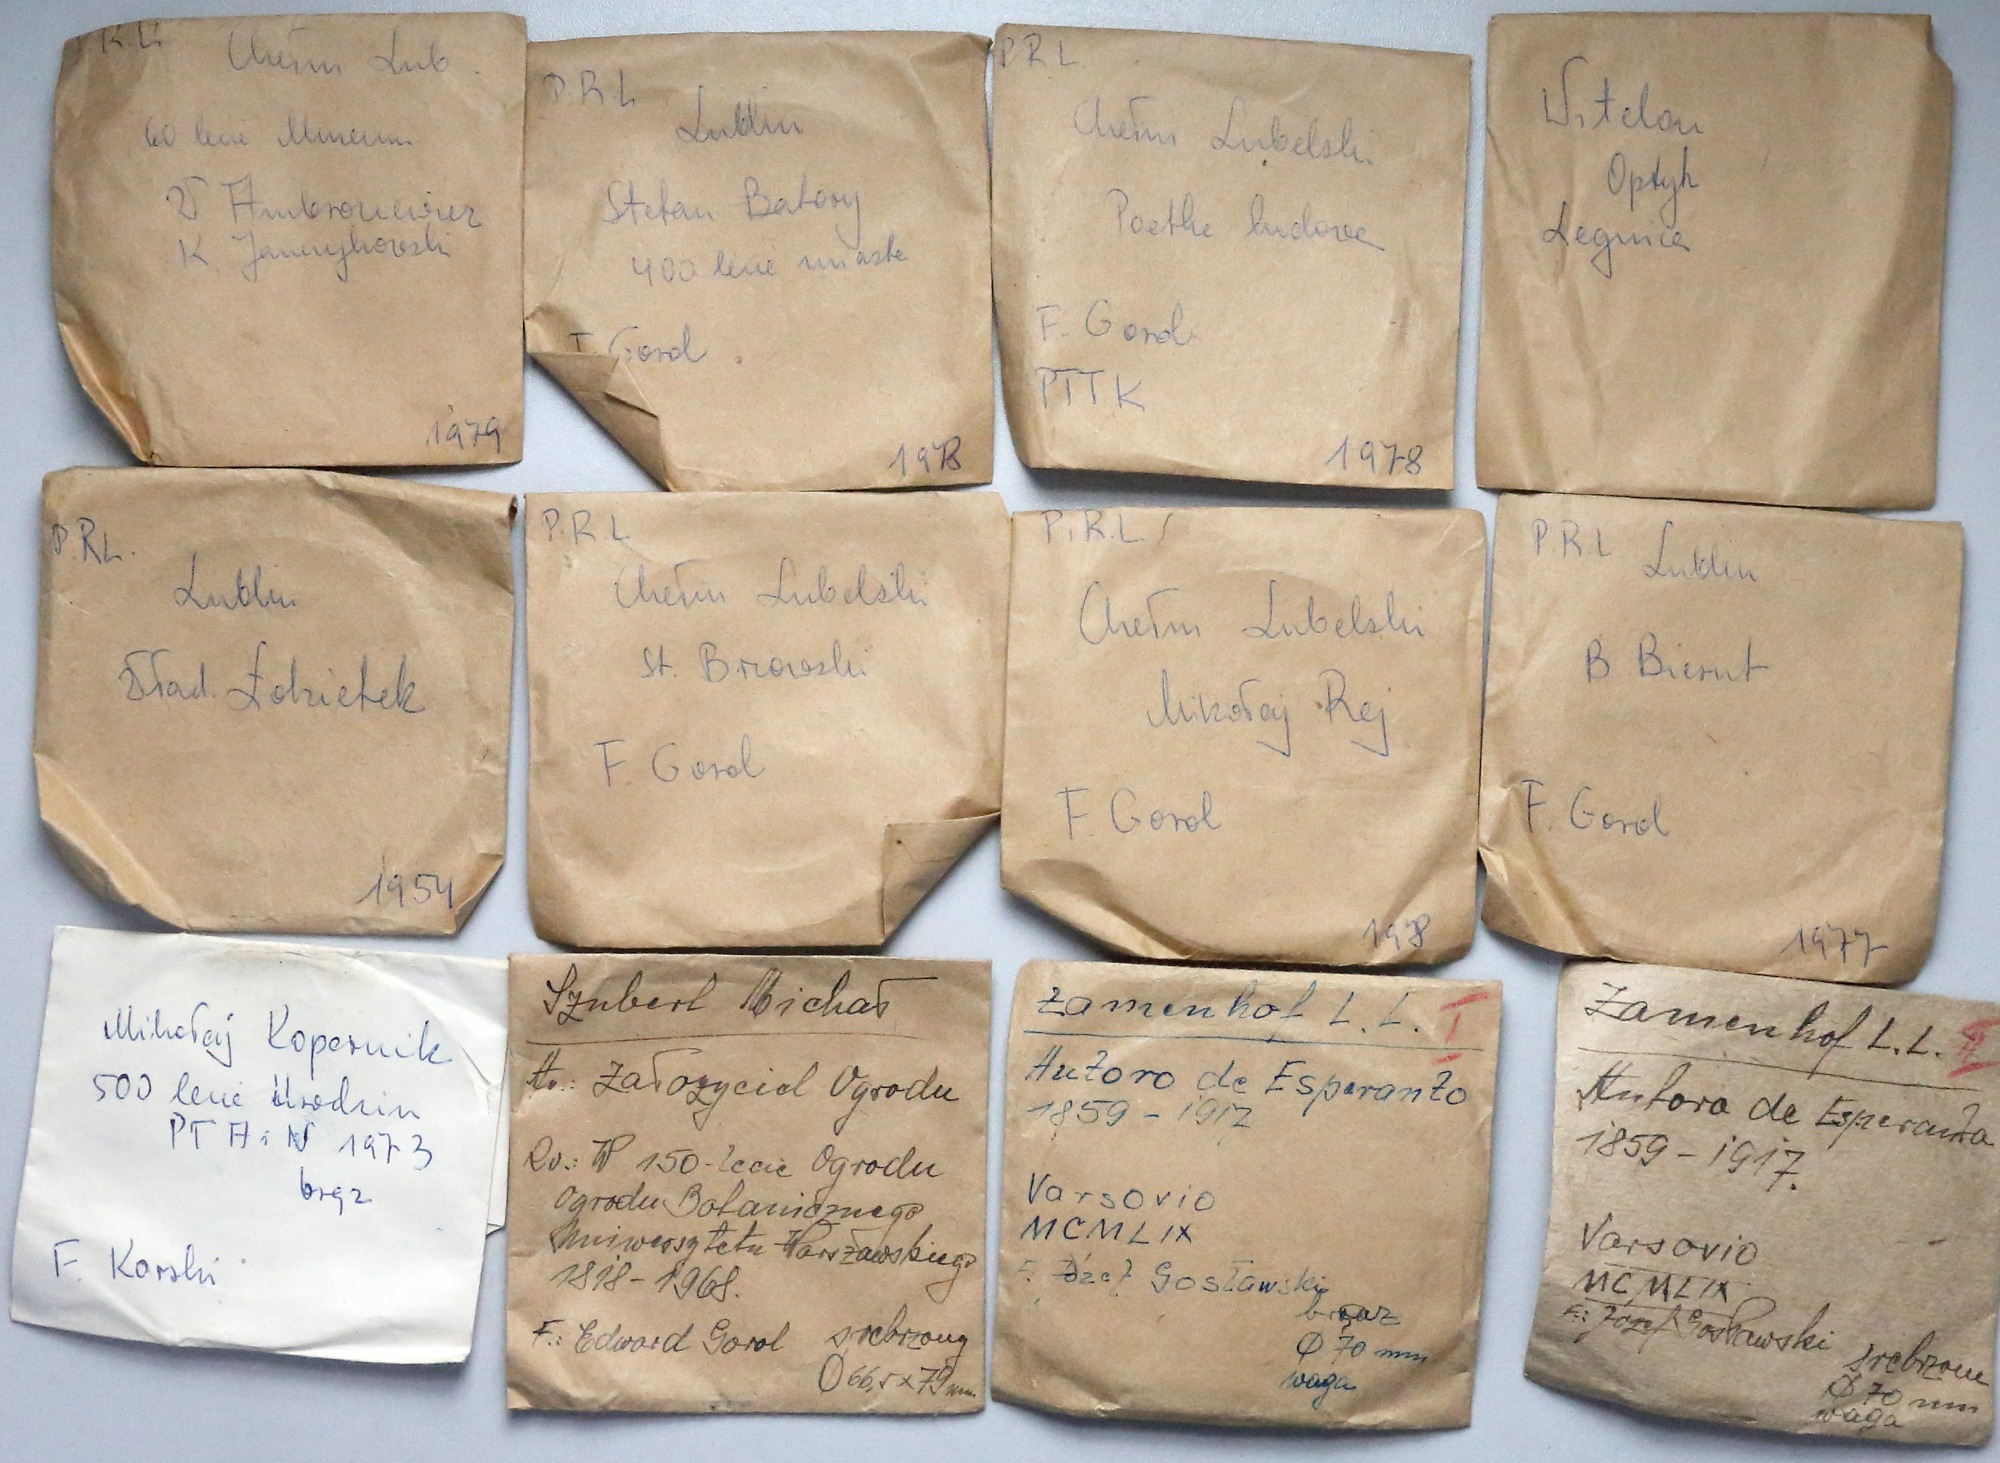 Chełm Lub.
60 lecie Muzeum
W Ambroziewicz
K. Janczykowski
1979
P.R.L
Lublin
Stefan Batory
400 lecie miasta
F. Gorol
1978
P R L.
Chełm Lubelski
Poetka ludowa
F. Gorol
PTTK
1978
Witelon
Optyk
Legnica
P.R.L.
Lublin
Wład. Łokietek
1954
P.R.L
Chełm Lubelski
St. Brzozowski
F. Gorol
P.R.L.
Chełm Lubelski
Mikołaj Rej
F. Gorol
1978
P.R.L Lublin
B Bierut
F. Gorol
1977
Mikołaj Kopernik
500 lecie Urodzin
PTAiN 1973
brąz
F. Karski
Szubert Michał
Av.: Założyciel Ogrodu
Rv.: W 150-lecie Ogrodu
Ogrodu Botanicznego
Uniwersytetu Warszawskiego
1818-1968.
F.: Edward Gorol srebrzony
Ø 66,5x79 mm.
Zamenhof L. L. I
Autoro de Esperanto
1859-1917
Varsovio
MCMLIX
F. Józef Gosławski
brąz
Ø 70 mm
waga
Zamenhof L. L. II
Autoro de Esperanto
1859-1917.
Varsovio
MCMLIX
F: Józef Gosławski
srebrzone
Ø 70 mm
waga